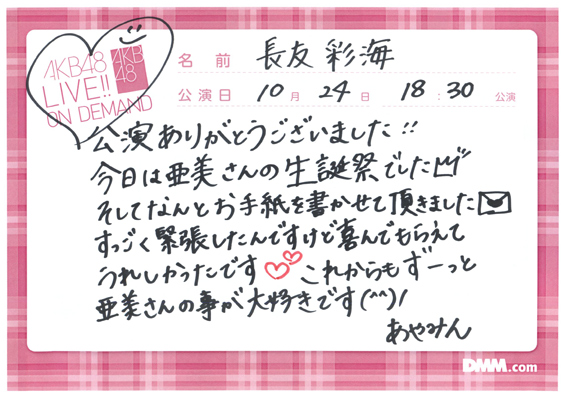 AKB48
LIVE!!
ON DEMAND
AKB
48
名前 長友 彩海
公演日 10月 24日 18:30 公演
公演ありがとうございました!!
今日は亜美さんの生誕祭でした
そしてなんとお手紙を書かせて頂きました
すっごく緊張したんですけど喜んでもらえて
うれしかったです これからもずーっと
亜美さんの事が大好きです(^^)/
あやみん
DMM.com